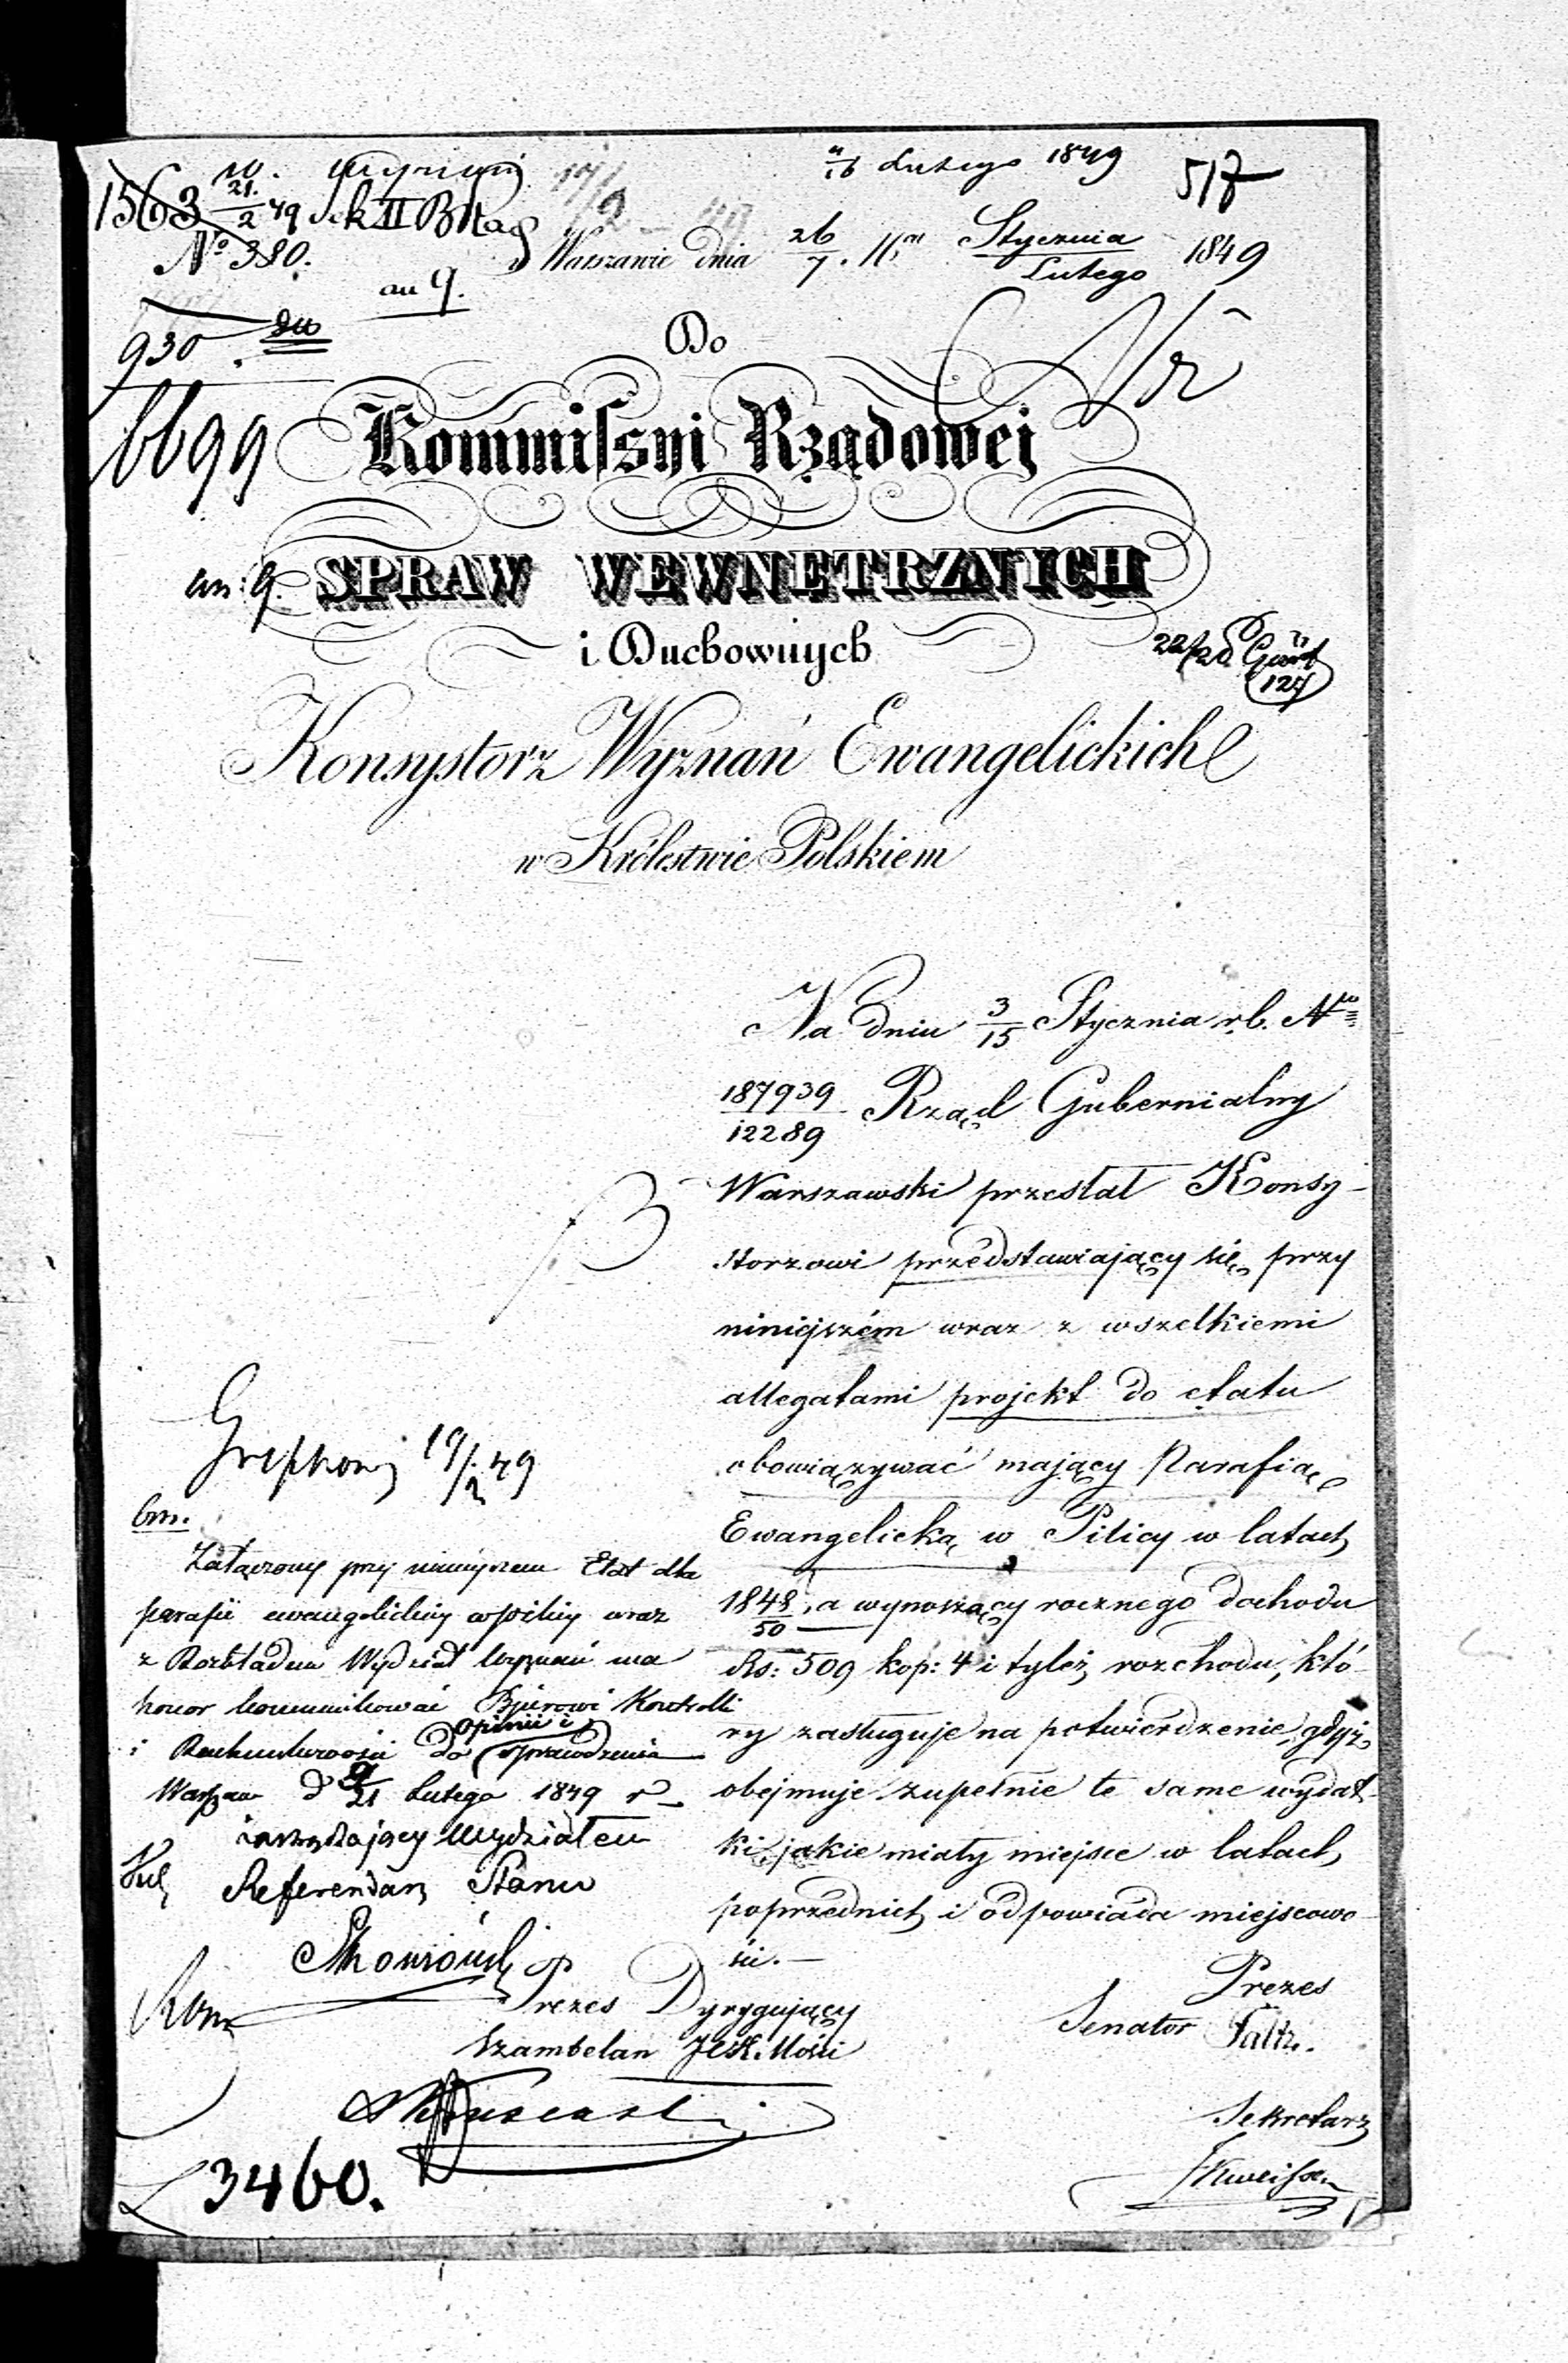 4/16 Lutego 1849
517
1563 21/2 49 Sek II
No 380.
w Warszawie dnia 26/7 Stycznia/Lutego 1849
an 9.
930
Do
6699
Kommissyi Rządowej
an: 9.
SPRAW WEWNĘTRZNYCH
i Duchownych
127
Konsystorz Wyznań Ewangelickich
w Królestwie Polskiem
Na dniu 3/15 Stycznia r.b. Nro
187939/12289 Rząd Gubernialny
Warszawski przesłał Konsy-
storzowi przedstawiający się przy
niniejszém wraz z wszelkiemi
allegatami projekt do etatu
obowiązywać mający Parafią
Ewangelicką w Pilicy w latach
1848/50, a wynoszący rocznego dochodu
Rs: 509 kop: 4 i tyleż rozchodu, któ-
ry zasługuje na potwierdzenie, gdyż
obejmuje zupełnie te same wydat-
ki, jakie miały miejsce w latach
poprzednich i odpowiada miejscowo-
ści.—
Prezes
Senator
Sekretarz
Prezes Dyrygujący
Szambelan
19/2 49
bm.
Załączony przy niniejszem Etat dla
parafii ewangelickiej w Pilicy wraz
z Rozkładem Wydział Wyznań ma
honor kommunikować Bjurowi Kontrolli
i Rachunkowości do opinii i sprawdzenia
Warszawa d 9/21 Lutego 1849 r
zarządzający Wydziałem
Referendarz Stanu
3460.